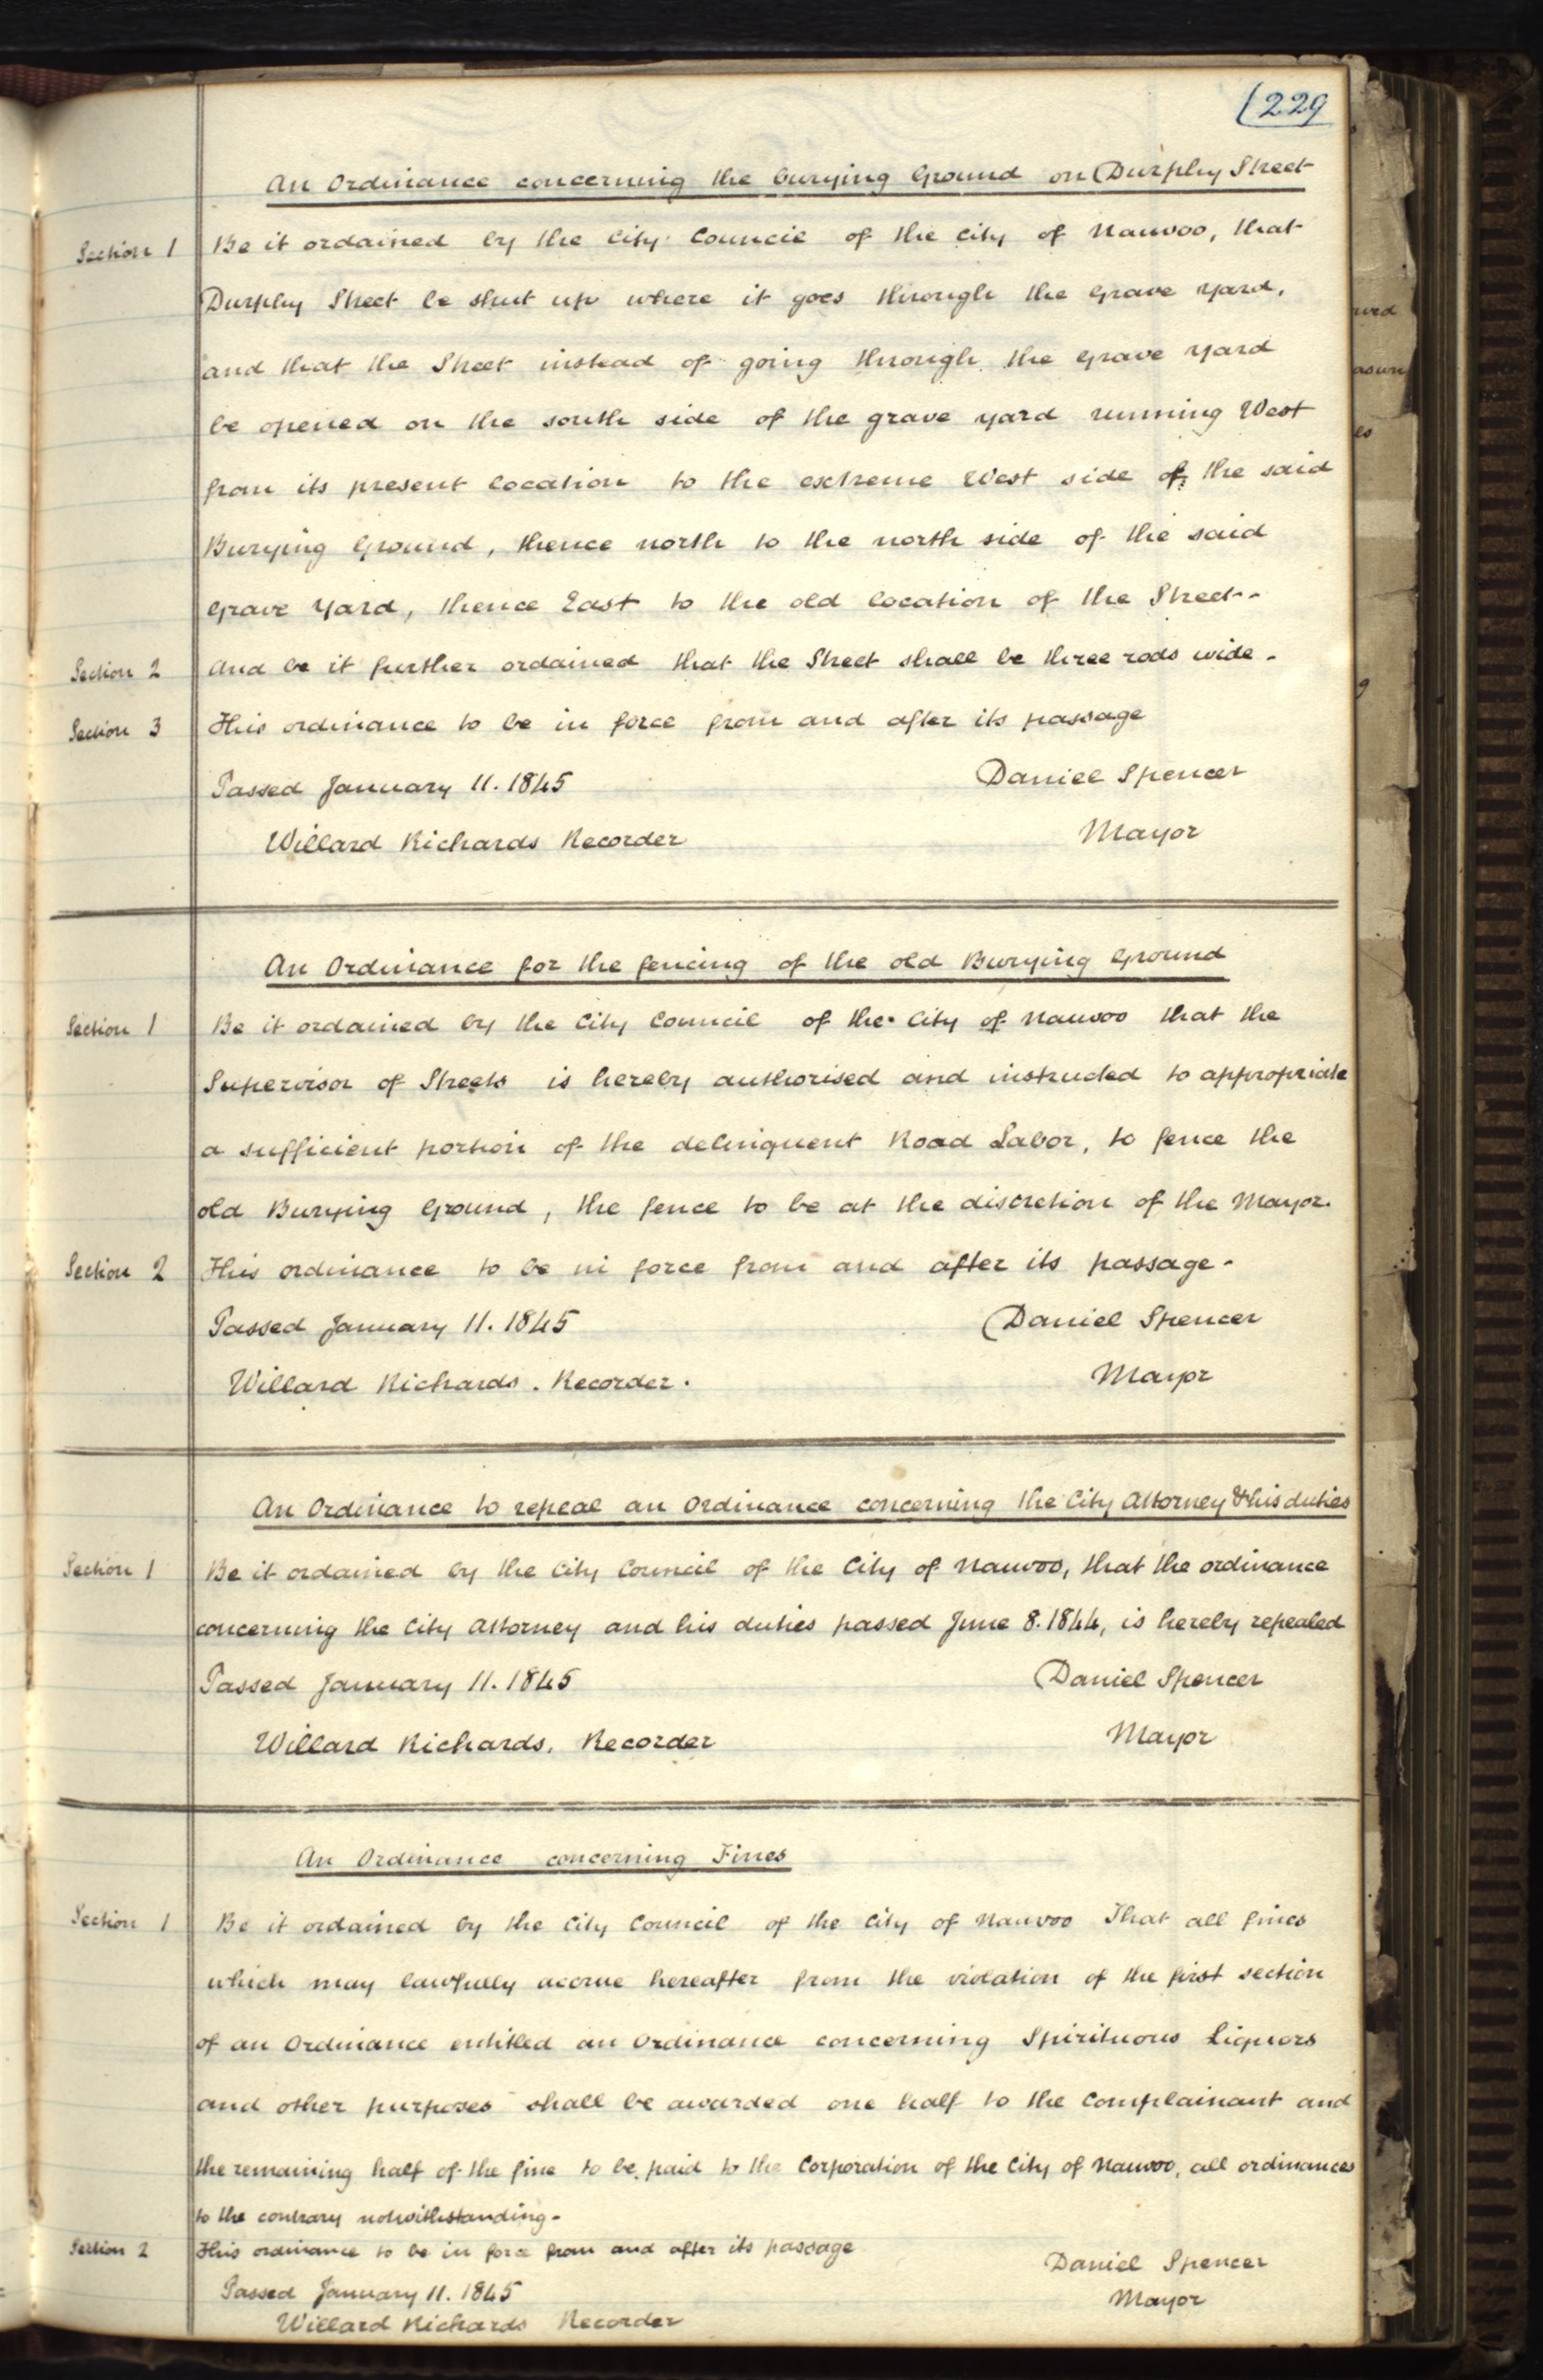 (229
An Ordinance concerning the burying Ground on Durphy Street
Section 1 Be it ordained by the City Council of the City of Nauvoo, that
Durphy Street be shut up where it goes through the Grave Yard,
and that the Street instead of going through the Grave Yard
be opened on the south side of the grave yard running West
from its present location to the extreme West side of the said
Burying Ground, thence north to the north side of the said
Grave Yard, thence East to the old location of the Street-
Section 2 And be it further ordained that the Street shall be three rods wide-
Section 3 This ordinance to be in force from and after its passage
Passed January 11. 1845 Daniel Spencer
Willard Richards Recorder Mayor
An Ordinance for the fencing of the old Burying Ground
Section 1 Be it ordained by the City Council of the City of Nauvoo that the
Supervisor of Streets is hereby authorised and instructed to appropriate
a sufficient portion of the delinquent Road Labor, to fence the
old Burying Ground, the fence to be at the discretion of the Mayor.
Section 2 This ordinance to be in force from and after its passage-
Passed January 11. 1845 Daniel Spencer
Willard Richards. Recorder. Mayor
An Ordinance to repeal an Ordinance concerning the City Attorney & his duties
Section 1 Be it ordained by the City Council of the City of Nauvoo, that the ordinance
concerning the City Attorney and his duties passed June 8. 1844, is hereby repealed
Passed January 11. 1845 Daniel Spencer
Willard Richards, Recorder Mayor
An Ordinance concerning Fines
Section 1 Be it ordained by the City Council of the City of Nauvoo That all fines
which may lawfully accrue hereafter from the violation of the first section
of an Ordinance entitled an Ordinance concerning Spirituous Liquors
and other purposes shall be awarded one half to the Complainant and
the remaining half of the fine to be paid to the Corporation of the City of Nauvoo, all ordinances
to the contrary notwithstanding-
Section 2 This ordinance to be in force from and after its passage
Passed January 11. 1845 Daniel Spencer
Willard Richards Recorder Mayor